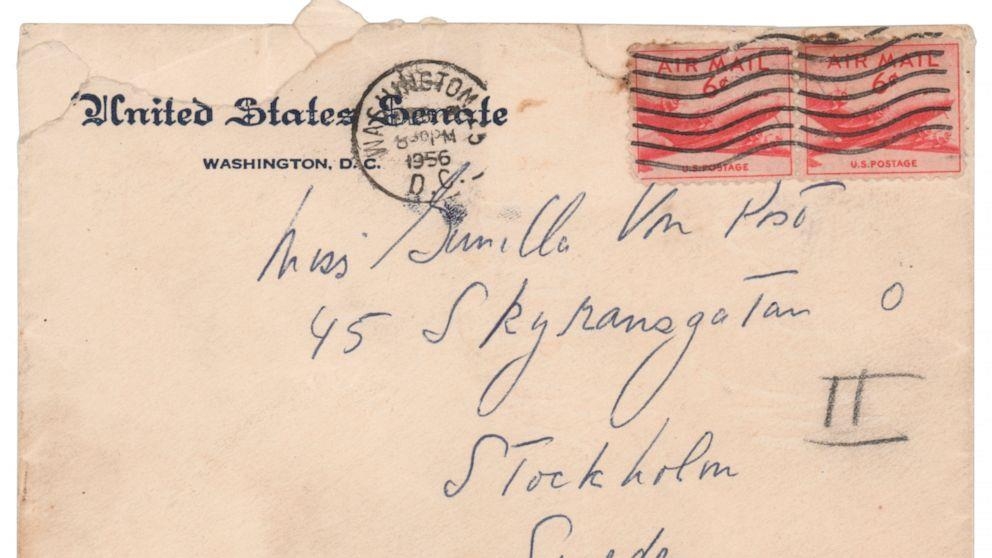 United States Senate
WASHINGTON, D. C.
WASHINGTON
PM
1956
D.C.
AIR MAIL
6¢
U.S. POSTAGE
AIR MAIL
6¢
U.S. POSTAGE
Miss Gunilla Von Post
45 Skyransgatan O
II
Stockholm